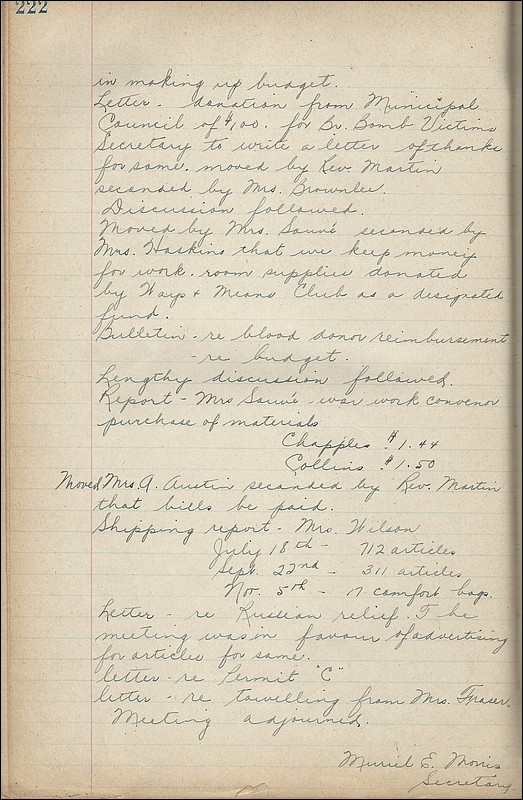 222
in making up budget.
Letter - donation from Municipal
Council of $100. for Br. Bomb Victims
Secretary to write a letter of thanks
for same. moved by Rev. Martin
seconded by Mrs. Brownlee.
Discussion followed.
Moved by Mrs. Sauvé seconded by
Mrs. Haskins that we keep money
for work. room supplies donated
by Ways + Means Club as a designated
fund.
Bulletin - re blood donor reimbursement
- re budget.
Lengthy discussion followed.
Report - Mrs Sauvé - war work convenor
purchase of materials
Chapples $1.44
Collins $1.50
Moved Mrs. A. Austin seconded by Rev. Martin
that bills be paid.
Shipping report - Mrs. Wilson
July 18th - 712 articles
Sept. 22nd - 311 articles
Nov. 5th - 17 comfort bags.
Letter - re Russian relief. The
meeting was in favour of advertising
for articles for same.
letter - re Permit "C"
letter - re towelling from Mrs. Fraser.
Meeting adjourned.
Muriel E. Morris
Secretary.